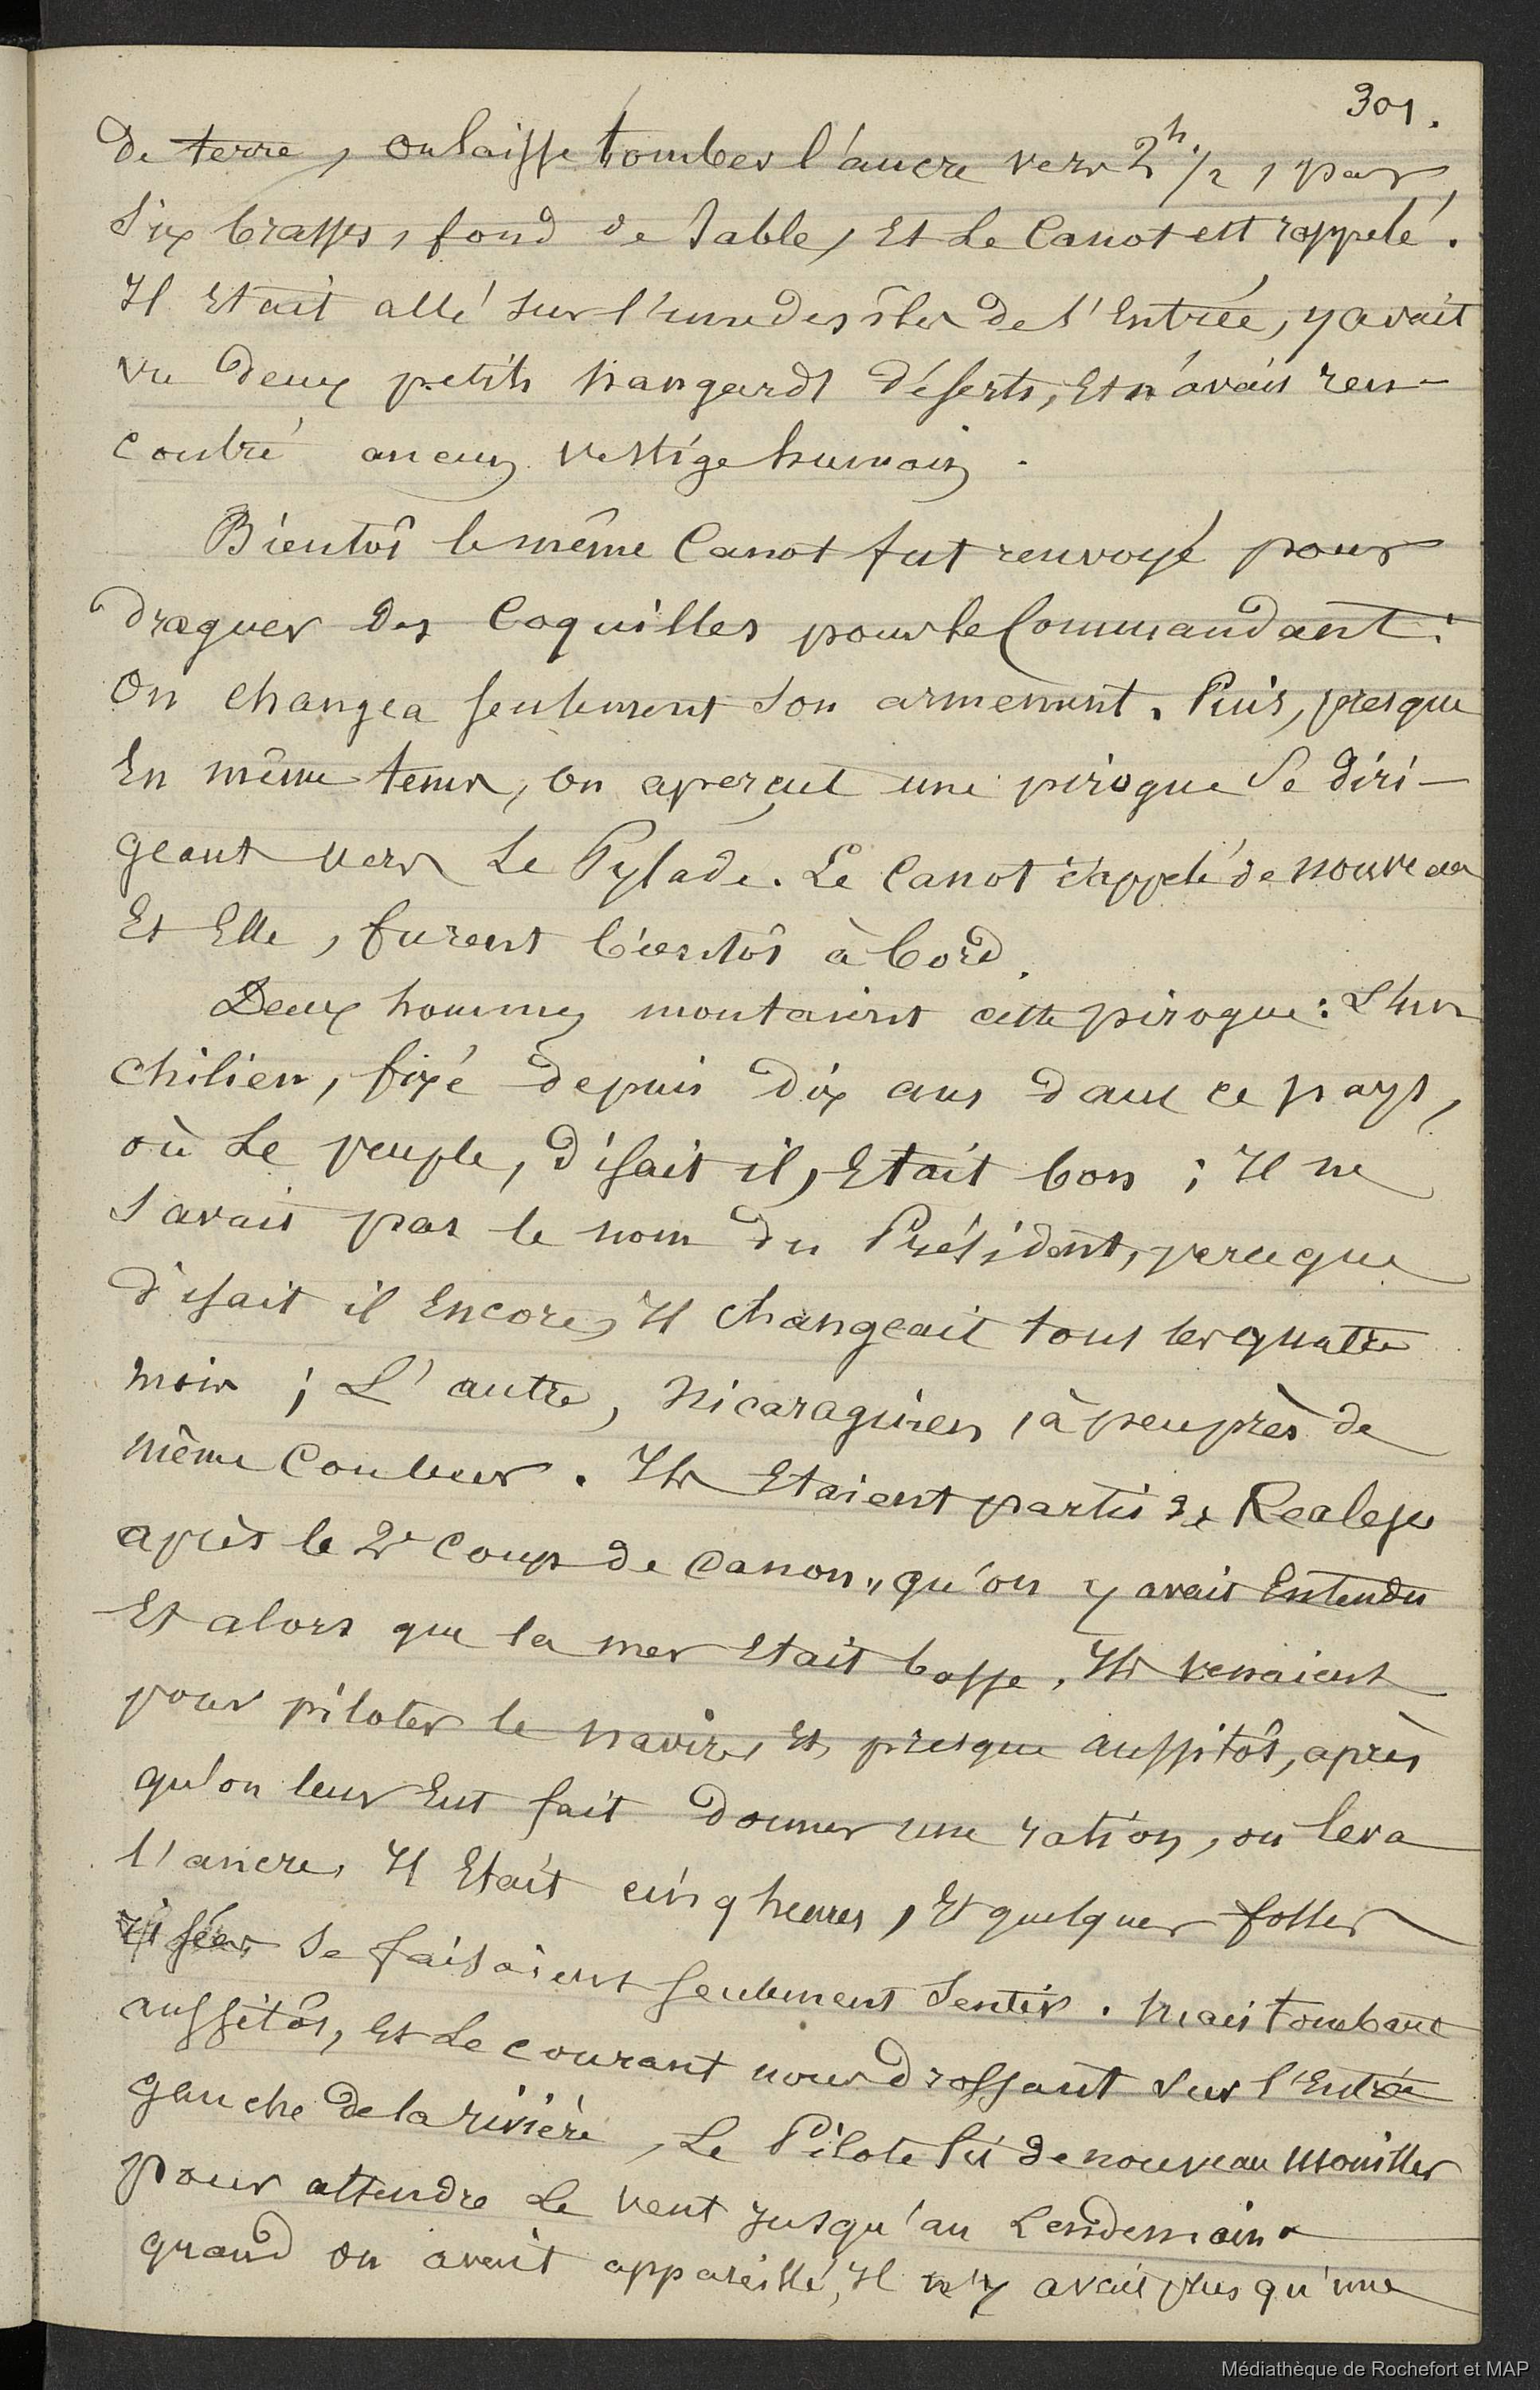 301.
De terre, on laisse tomber l'ancre vers 2h 1/2, par
six brasses, fond de sable, Et Le Canot est rappelé.
Il Etait allé sur l'une des îles de l'Entrée, y avait
vu deux petits hangards déserts, Et n'avait ren-
contré aucun vestige humain.
Bientôt le même Canot fut renvoyé pour
draguer des Coquilles pour le Commandant:
On changea seulement son armement. Puis, presque
En même tems, on aperçut une pirogue se diri-
geant vers Le Pylade. Le Canot rappelé de nouveau
Et Elle, furent bientôt à bord.
Deux hommes montaient cette pirogue: L'un
Chilien, fixé depuis dix ans dans ce pays,
où Le peuple, disait il, Etait bon; Il ne
savait pas le nom du Président, parceque
disait il Encore, Il changeait tous les quatre
mois; L'autre, Nicaraguien, à peu près de
même Couleur. Ils Etaient partis de Realejo
après le 2e Coup de Canon, qu'on y avait Entendu
Et alors que la mer Etait basse. Ils venaient
pour piloter le navire, Et, presque aussitôt, après
qu'on leur Eut fait donner une ration, on leva
l'ancre, Il Etait cinq heures, Et quelques folles
risées se faisaient seulement sentir. Mais tombant
aussitôt, Et Le courant nous drossant sur l'Entrée
gauche de la rivière, Le Pilote fit de nouveau mouiller
pour attendre Le vent jusqu'au Lendemain.
quand on avait appareillé, Il n'y avait plus qu'une
Médiathèque de Rochefort et MAP